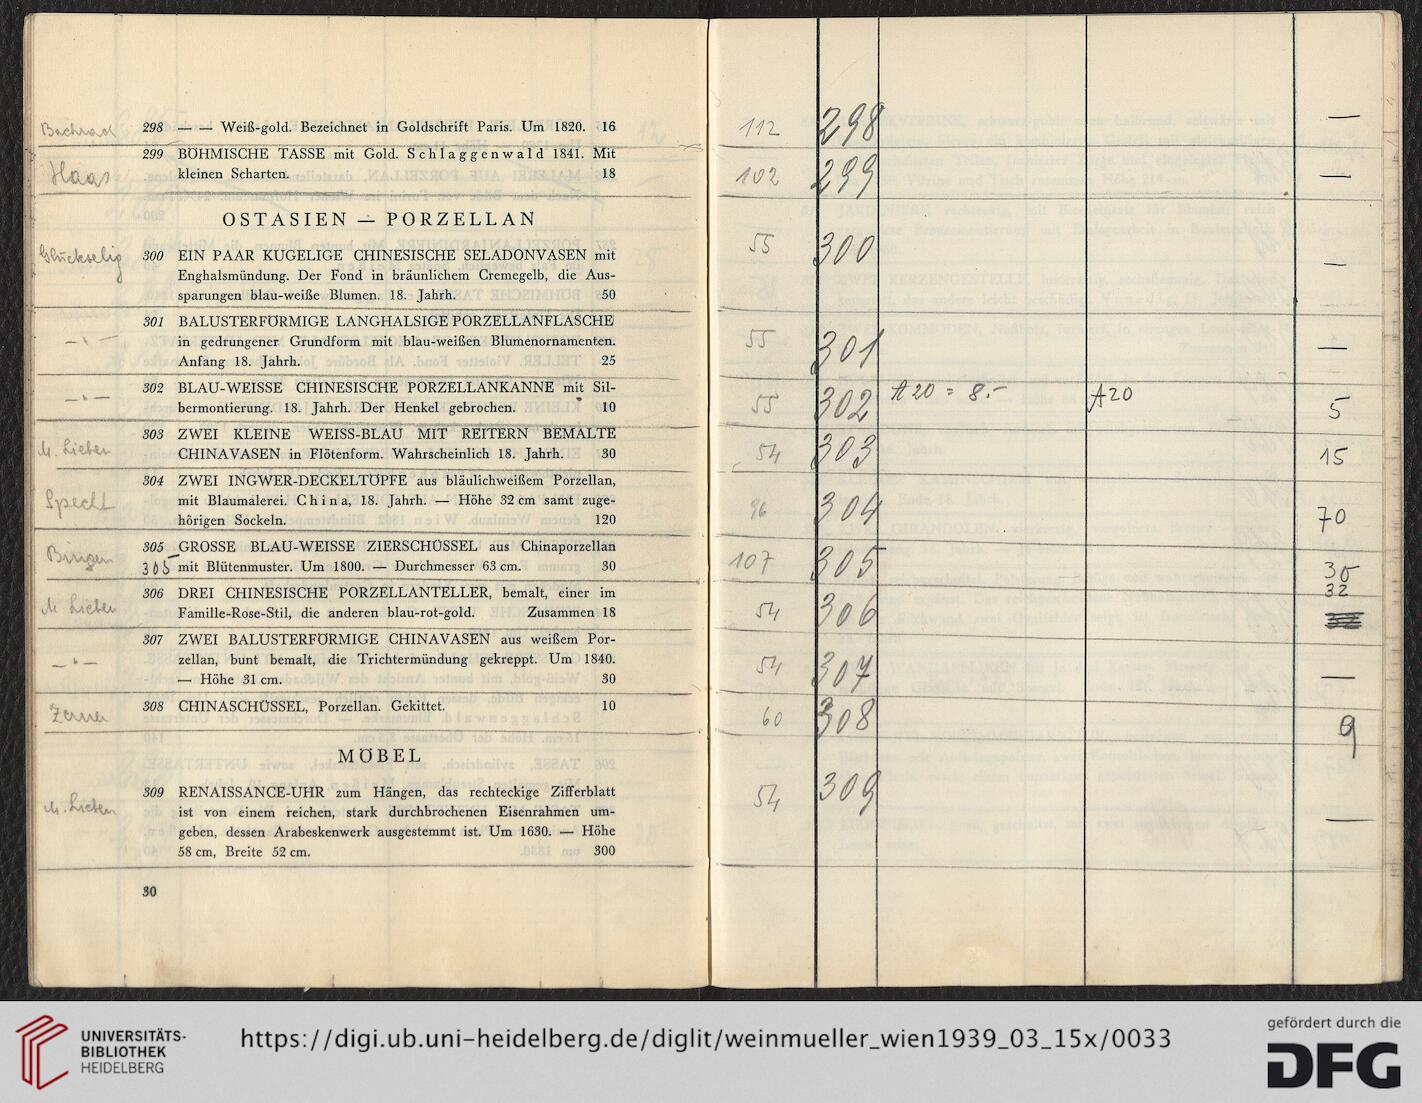 Bachrach
298 — — Weiß-gold. Bezeichnet in Goldschrift Paris. Um 1820. 16
299 BÖHMISCHE TASSE mit Gold. Schlaggenwald 1841. Mit
Haas
kleinen Scharten. 18
OSTASIEN — PORZELLAN
Glückselig
300 EIN PAAR KUGELIGE CHINESISCHE SELADONVASEN mit
Enghalsmündung. Der Fond in bräunlichem Cremegelb, die Aus-
sparungen blau-weiße Blumen. 18. Jahrh. 50
301 BALUSTERFÖRMIGE LANGHALSIGE PORZELLANFLASCHE
— " — in gedrungener Grundform mit blau-weißen Blumenornamenten.
Anfang 18. Jahrh. 25
302 BLAU-WEISSE CHINESISCHE PORZELLANKANNE mit Sil-
— " — bermontierung. 18. Jahrh. Der Henkel gebrochen. 10
303 ZWEI KLEINE WEISS-BLAU MIT REITERN BEMALTE
M. Lieben CHINAVASEN in Flötenform. Wahrscheinlich 18. Jahrh. 30
304 ZWEI INGWER-DECKELTÖPFE aus bläulichweißem Porzellan,
Specht mit Blaumalerei. China, 18. Jahrh. — Höhe 32 cm samt zuge-
hörigen Sockeln. 120
305 GROSSE BLAU-WEISSE ZIERSCHÜSSEL aus Chinaporzellan
305 mit Blütenmuster. Um 1800. — Durchmesser 63 cm. 30
306 DREI CHINESISCHE PORZELLANTELLER, bemalt, einer im
M Lieben Famille-Rose-Stil, die anderen blau-rot-gold. Zusammen 18
307 ZWEI BALUSTERFÖRMIGE CHINAVASEN aus weißem Por-
— " — zellan, bunt bemalt, die Trichtermündung gekreppt. Um 1840.
— Höhe 31 cm. 30
308 CHINASCHÜSSEL, Porzellan. Gekittet. 10
MÖBEL
309 RENAISSANCE-UHR zum Hängen, das rechteckige Zifferblatt
M. Lieben ist von einem reichen, stark durchbrochenen Eisenrahmen um-
geben, dessen Arabeskenwerk ausgestemmt ist. Um 1630. — Höhe
58 cm, Breite 52 cm. 300
30
112 298 —
102 299 —
55 300 —
55 301 —
55 302 A20 = 8.- A20 5
54 303 15
96 304 70
107 305 30
32
54 306
54 307 —
60 308 9
54 309 —
UNIVERSITÄTS-
BIBLIOTHEK
HEIDELBERG
https://digi.ub.uni-heidelberg.de/diglit/weinmueller_wien1939_03_15x/0033
gefördert durch die
DFG